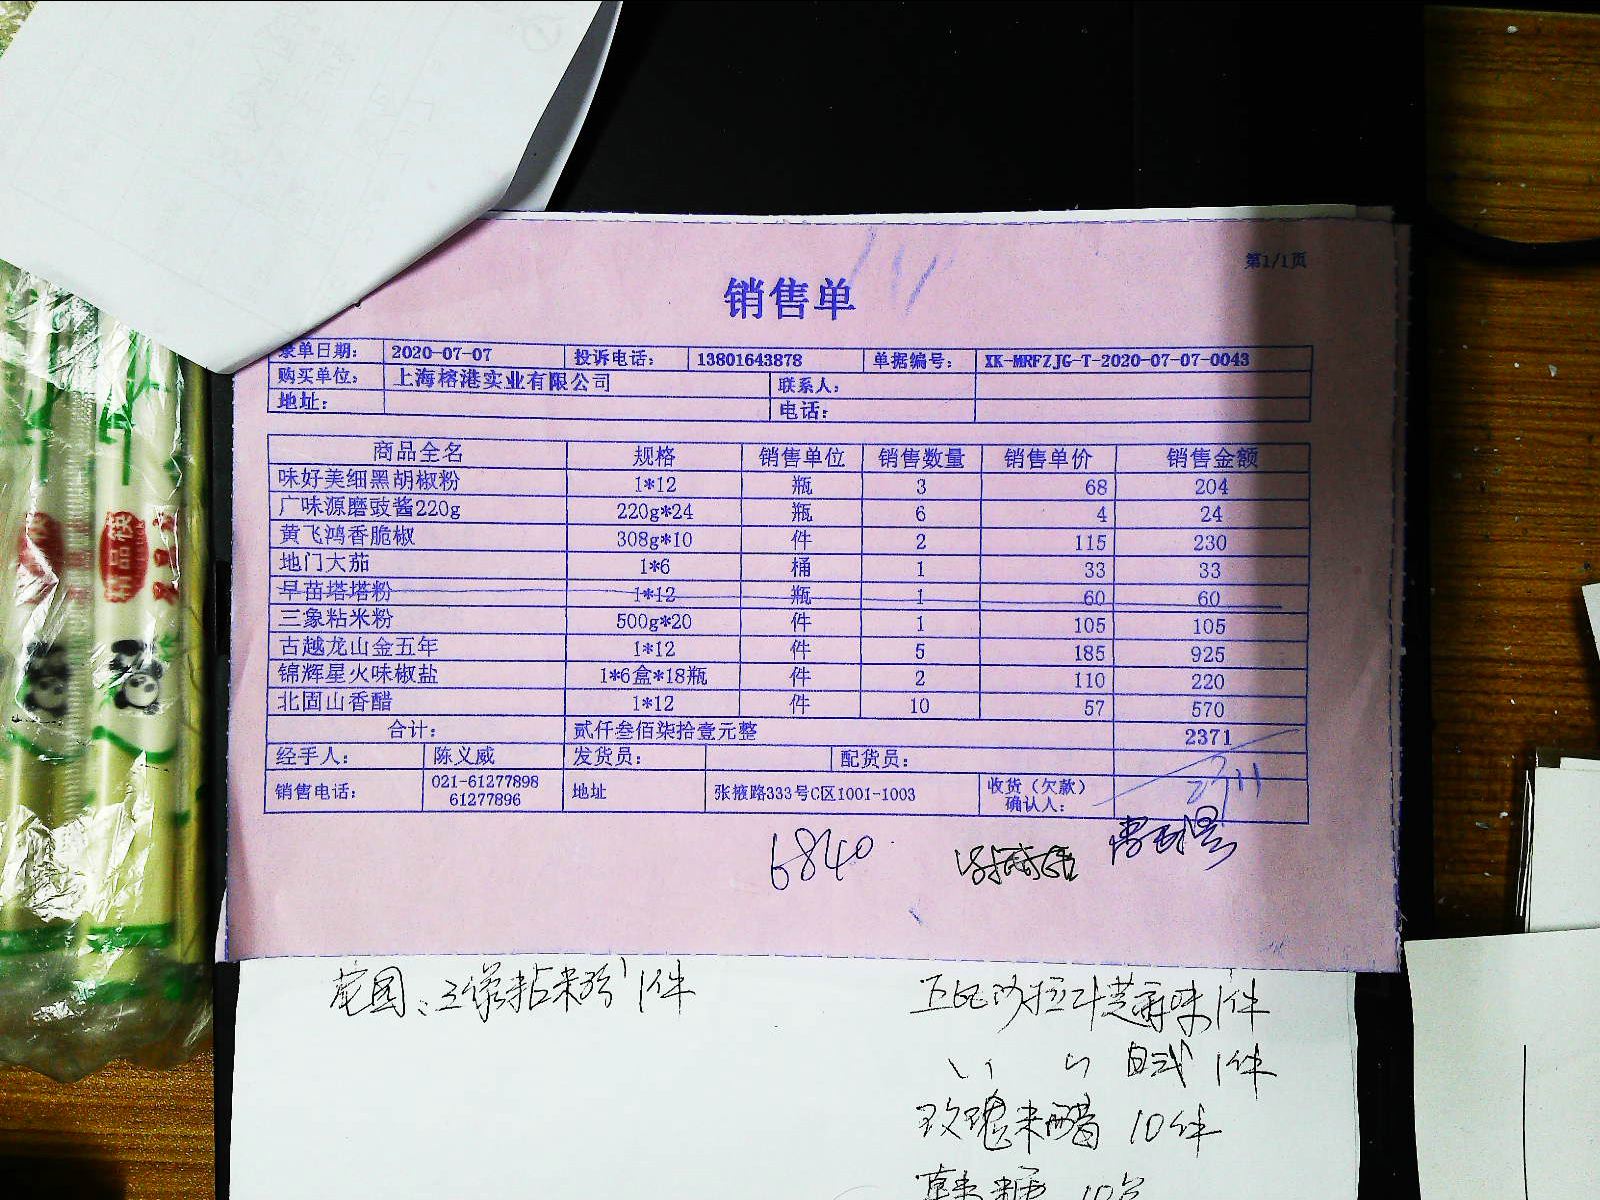 第1/1页
销售单
录单日期： 2020-07-07 投诉电话： 13801643878 单据编号： XK-MRFZJG-T-2020-07-07-0043
购买单位： 上海榕港实业有限公司 联系人：
地址： 电话：
商品全名 规格 销售单位 销售数量 销售单价 销售金额
味好美细黑胡椒粉 1*12 瓶 3 68 204
广味源磨豉酱220g 220g*24 瓶 6 4 24
黄飞鸿香脆椒 308g*10 件 2 115 230
地门大茄 1*6 桶 1 33 33
早苗塔塔粉 1*12 瓶 1 60 60
三象粘米粉 500g*20 件 1 105 105
古越龙山金五年 1*12 件 5 185 925
锦辉星火味椒盐 1*6盒*18瓶 件 2 110 220
北固山香醋 1*12 件 10 57 570
合计： 贰仟叁佰柒拾壹元整 2371
经手人： 陈义威 发货员： 配货员：
销售电话： 021-61277898 61277896 地址 张掖路333号C区1001-1003 收货（欠款）确认人： 2311
6840
三象粘米粉 1件
丘比沙拉汁芝麻味 1件
1件
玫瑰米醋 10件
精品筷